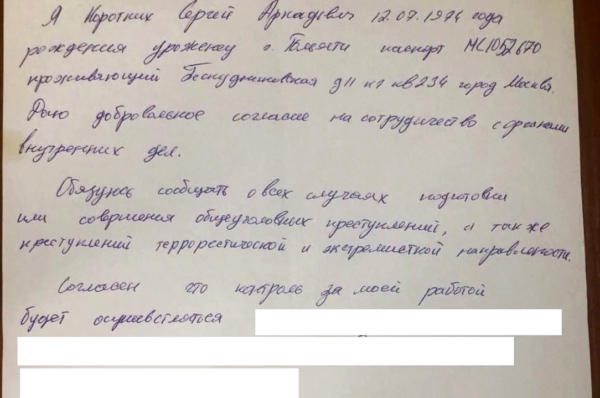 Я Коротких Сергей Аркадевич 12.07.1974 года
рождения уроженец г. Тольяти паспорт МС1052670
проживающий Бескудниковская д11 к1 кв234 город Москва.
Даю добровольное согласие на сотрудичество с органами
внутренних дел.
Обязуюсь сообщать о всех случаях подготовки
или совершения общеуголовных преступлений, а также
преступлений террорестической и экстремисткой направлености.
Согласен что контроль за моей работой
будет осушевстляться